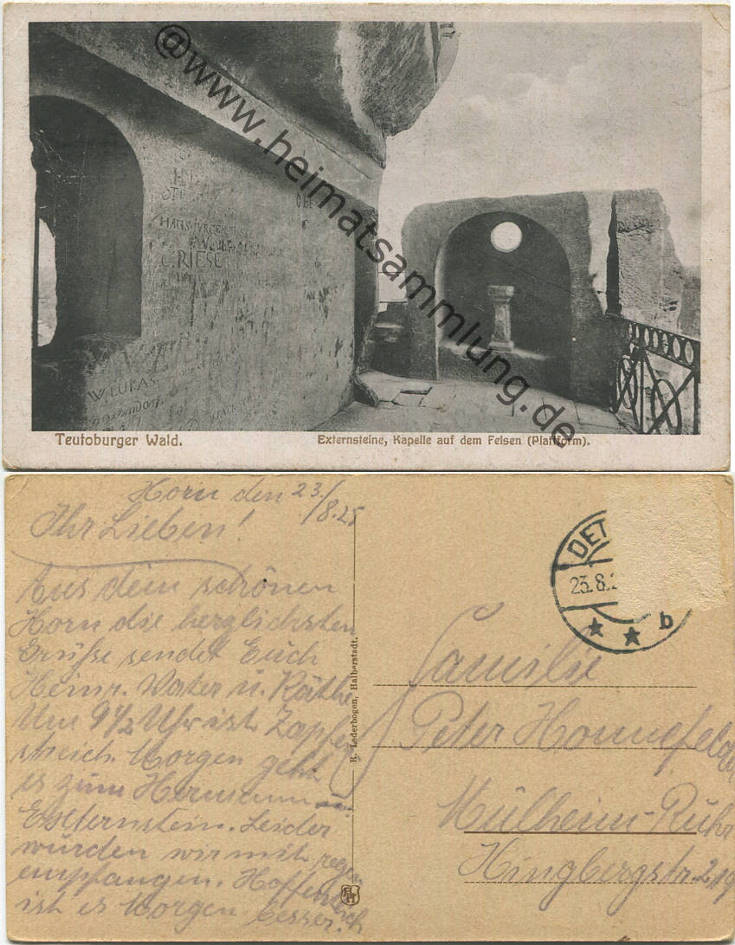 @www.heimatsammlung.de
HANS
C. RIESE
W. LUKAS
Teutoburger Wald.
Externsteine, Kapelle auf dem Felsen (Plattform).
Horn den 23./8.25
Ihr Lieben!
Aus dem schönen
Horn die herzlichsten
Grüße sendet Euch
Heinr. Vater u. Käthe
Um 9 1/2 Uhr ist Zapfen
streich. Morgen geht
es zum Hermann
Exsternstein. Leider
wurden wir mit regen
empfangen. Hoffentlich
ist es Morgen besser.
R. Lederbogen, Halberstadt.
DET
23.8.2
b
Familie
Peter
Mülheim-Ruhr